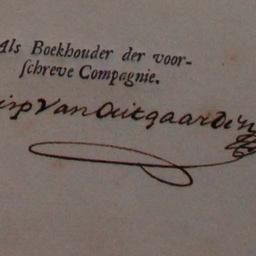 Als Boekhouder der voor-
schreve Compagnie.
van Outgaarden